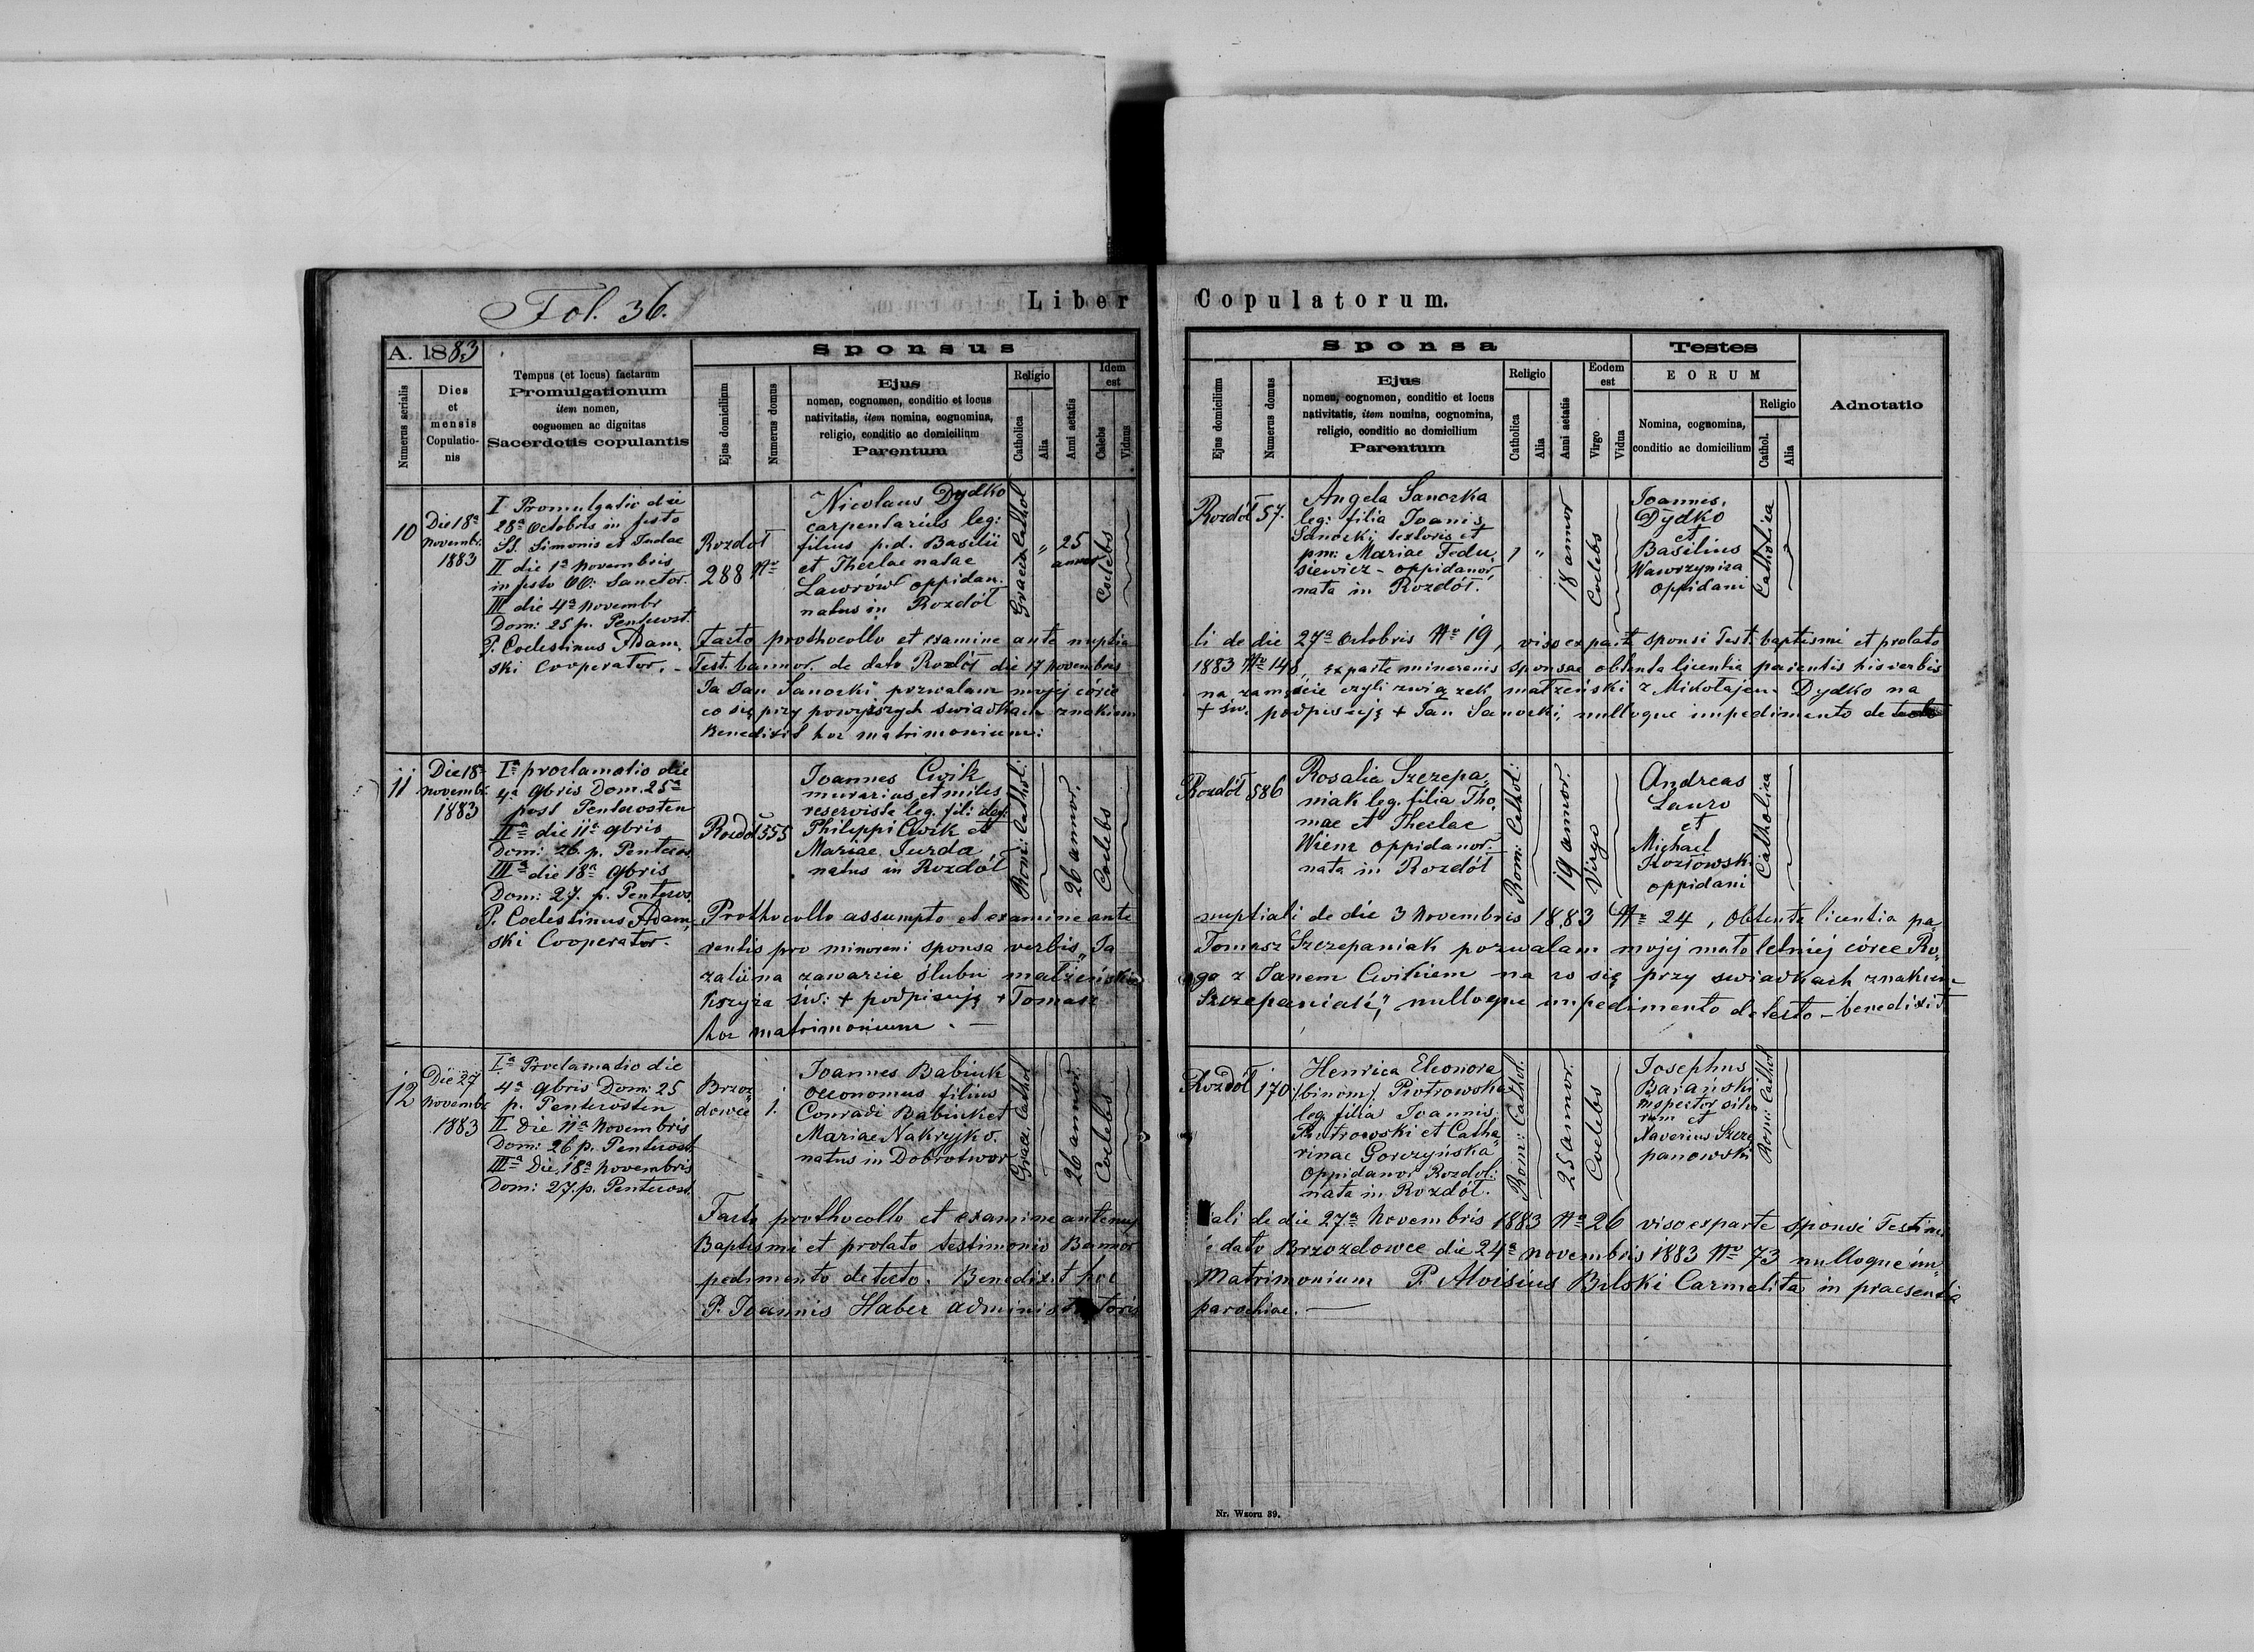 Fol. 36.
Liber Copulatorum.
A. 1883
Numerus serialis
Dies et mensis Copulatio-nis
Tempus (et locus) factarum
Promulgationum
item nomen,
cognomen ac dignitas
Sacerdotis copulantis
Sponsus
Ejus domicilium
Numerus domus
Ejus
nomen, cognomen, conditio et locus
nativitatis, item nomina, cognomina,
religio, conditio ac domicilium
Parentum
Religio
Catholica
Alia
Anni aetatis
Idem est
Caelebs
Viduus
Sponsa
Ejus domicilium
Numerus domus
Ejus
nomen, cognomen, conditio et locus
nativitatis, item nomina, cognomina,
religio, conditio ac domicilium
Parentum
Religio
Catholica
Alia
Anni aetatis
Eodem est
Virgo
Vidua
Testes
EORUM
Nomina, cognomina,
conditio ac domicilium
Religio
Cathol.
Alia
Adnotatio
10
Die 18ª
Novembr.
1883
I Promulgatio die
28ª Octobris in festo
SS. Simonis et Judae
II die 1ª Novembris
in festo OO. Sanctor.
III die 4ª Novembr
Dom: 25 p. Pentecost.
P. Coelestinus Adam,
ski Cooperator. –
Rozdół
288 Nro
Nicolaus Dydko
carpentarius leg:
filius p.d. Basilii
et Theclae natae
Lawrów oppidan.
natus in Rozdół
Graeco Cathol
"
25
annor
Coelebs
Rozdół
57.
Angela Sanocka
leg: filia Joanis
Sanocki textoris et
pm: Mariae Fedu
siewicz – oppidanor,
nata in Rozdół.
1
"
18 annor
Coelebs
Joannis,
Dydko
et
Basilius
Wawrzynica
oppidani
Catholica
Facto prothocollo et examine ante nuptia li de die 27ª Octobris Nro 19, viso ex part sponsi Test. baptismi et prolato
Test. bannor. de dato Rozdół die 17 Novembris 1883 Nro 148, ex parte minorenis sponsae obtenta licentia parentis his verbis
Ja Jan Sanocki pozwalam mojej córce na zamęście czyli związek małżeński z Mikołajem Dydko na
co się przy powyższych świadkach znakiem + św. podpisuję + Jan Sanocki; nulloque impedimento de tecto
Benedixit hoc matrimonium:
11
Die 18ª
Novembr.
1883
Iª proclamatio die
4ª 9bris Dom. 25ª
post Pentecosten
IIª die 11ª 9bris
Dom: 26 p. Pentecos
IIIª die 18ª 9bris
Dom: 27. p. Pentecos.
P. Coelestinus Adam,
ski Cooperator.
Rozdół
555
Joannes Cwik
murarius et miles
reservista leg. fili: def:
Philippi Cwik et
Mariae Jurda
natus in Rozdół
Rom: Cathol:
26 annor.
Coelebs
Rozdół
586
Rosalia Szczepa,
niak leg. filia Tho,
mae et Theclae
Wienc oppidanor.
nata in Rozdół
Rom: Cathol:
19 annor.
Virgo
Andreas
Lauro
et
Michael
Kozłowski
oppidani
Catholica
Prothocollo assumpto et examine ante nuptiali de die 3 Novembris 1883 Nro 24, Obtenta licentia pa,
rentis pro minoreni sponsa verbis „Ja Tomasz Szczepaniak pozwalam mojej małoletniej córce Ro,
zalii na zawarcie ślubu małżeńskie go z Janem Cwikiem na co się przy świadkach znakiem
krzyża św: + podpisuję + Tomasz Szczepaniak;" nulloque impedimento detecto – benedixit
hoc matrimonium. –
12
Die 27
Novembr
1883
Iª Proclamatio die
4ª 9bris Dom: 25
p. Pentecosten
II die 11ª Novembris
Dom: 26 p. Pentecost.
IIIª Die 18ª Novembris
Dom: 27. p. Pentecost.
Brzoz,
dowce
1.
Joannes Babiuk
oeconomus filius
Conradi Babiuk et
Mariae Nakryjko.
natus in Dobrotwor
Graec. Cathol
26 annor
Coelebs
Rozdół
170
Henrica Eleonora
/binom/ Piotrowska
leg filia Joannis
Piotrowski et Catha,
rinae Gorczyńska
oppidanor Rozdoł.
nata in Rozdół.
Rom: Cathol.
25 annor.
Coelebs
Josephus
Barański
inspector silva
rum et
Xaverius Szcze
panowski
Rom: Cathol
Facto prothocollo et examine antenup tiali de die 27ª Novembris 1883 Nro 26 viso ex parte sponsi Testim
Baptismi et prolato testimonio Bannor de dato Brzozdowce die 24ª Novembris 1883 Nro 73 nulloque im,
pedimento detecto. Benedixit hoc Matrimonium P. Aloisius Bilski Carmelita in praesentia
P. Joannis Haber administratoris parochiae. –
Nr. Wzoru 39.